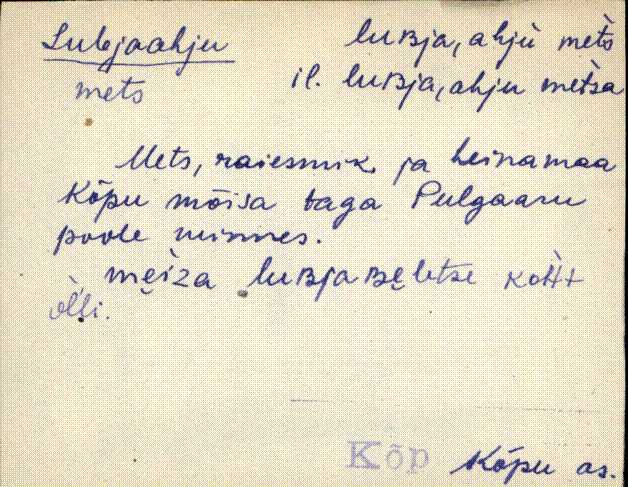 Lubjaahju
mets
luʙja,ahju mèts
il. luʙja,ahju mètsa
Mets, raiesmik ja heinamaa
Kõpu mõisa taga Pulgaaru
poole minnes.
mẹiza luʙjaʙẹletse kòht
òlli.
Kõp
Kõpu as.